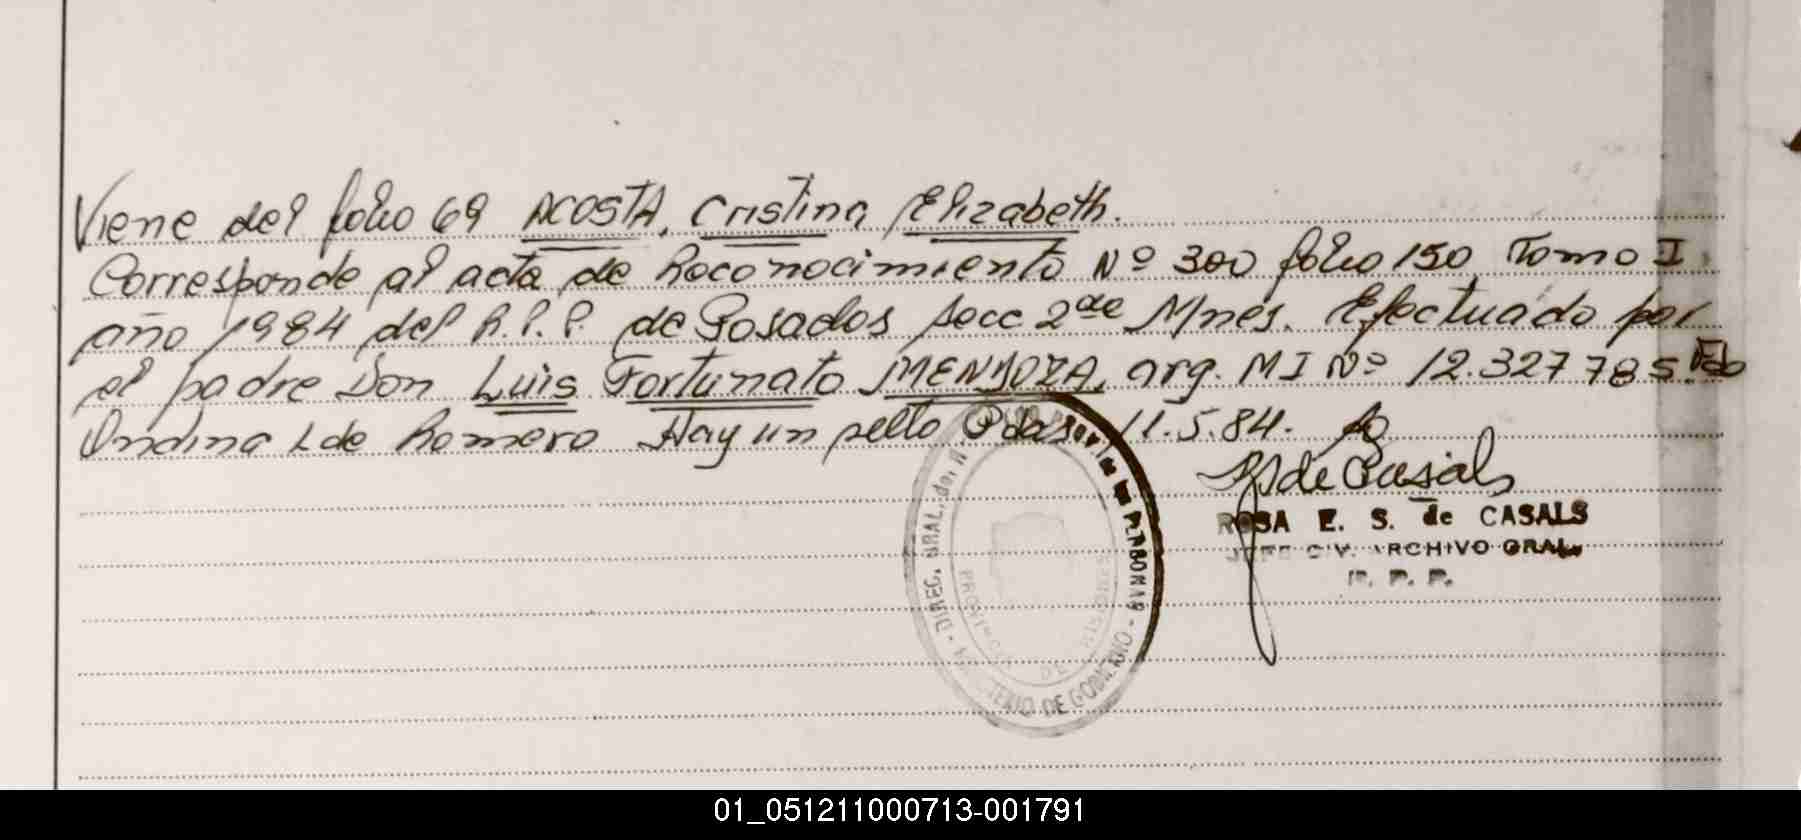 Viene del folio 69 ACOSTA, Cristina Elizabeth.
Corresponde al acta de Reconocimiento Nº 300 folio 150 Tomo I
año 1984 del R.P.P. de Posadas secc 2da Mnes. Efectuado por
el padre Don Luis Fortunato MENDOZA, arg. MI Nº 12.327785. Fdo
Ondina L de Romero Hay un sello Pdas. 11.5.84.
RS de Casals
ROSA E. S. de CASALS
JEFE DIV. ARCHIVO GRAL.
R. P. P.
DIREC. GRAL. de las PERSONAS
MINISTERIO DE GOBIERNO
PROVINCIA DE MISIONES
01_051211000713-001791